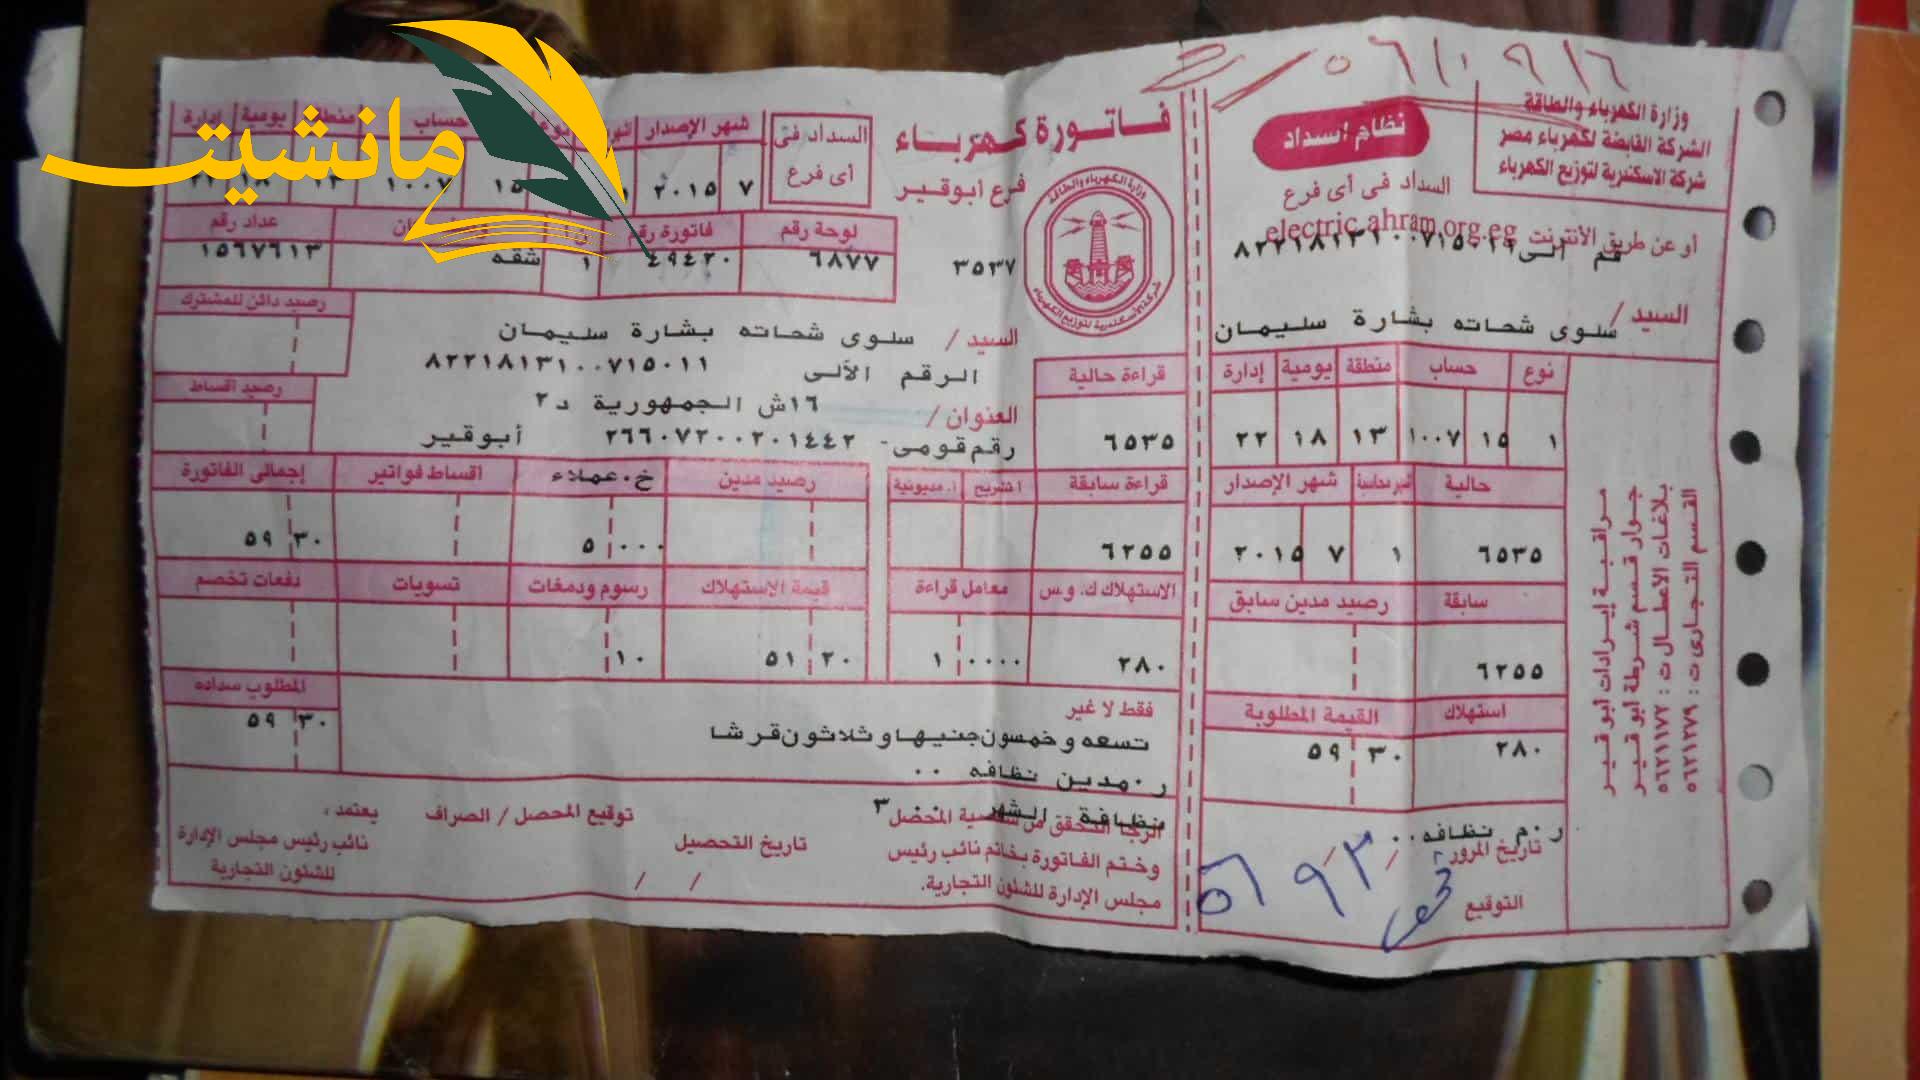 مانشيت
وزارة الكهرباء والطاقة
الشركة القابضة لكهرباء مصر
شركة الاسكندرية لتوزيع الكهرباء
نظام اسداد
السداد فى أى فرع
أو عن طريق الأنترنت electric.ahram.org.eg
السيد / سلوى شحاته بشارة سليمان
نوع حساب منطقة يومية إدارة
١ ١٥ ١٠٠٧ ١٣ ١٨ ٢٢
حالية شهر الإصدار
٦٥٣٥ ١ ٧ ٢٠١٥
سابقة رصيد مدين سابق
٦٢٥٥
استهلاك القيمة المطلوبة
٢٨٠ ٥٩ ٣٠
ر.م نظافه ٠٠
تاريخ المرور
التوقيع
مراقبة إيرادات أبو قير
جوار قسم شرطة أبو قير
بلاغات الأعطال ت : ٥٦٢١١٧٢
القسم التجارى ت : ٥٦٢١٢٧٩
فاتورة كهرباء
فرع ابوقير
٣٥٣٧
السداد فى
أى فرع
شهر الإصدار حساب منطقة يومية إدارة
٧ ٢٠١٥ ١٥ ١٠٠٧ ١٣
لوحة رقم فاتورة رقم عداد رقم
٦٨٧٧ ٤٩٤٢٠ ١ شقه ١٥٦٧٦١٣
السيد / سلوى شحاته بشارة سليمان
الرقم الألى ٨٢٢١٨١٣١٠٠٧١٥٠١١
العنوان / ١٦ش الجمهورية د٢
رقم قومى- ٢٦٦٠٧٢٠٠٢٠١٤٤٢ أبوقير
رصيد دائن للمشترك
رصيد اقساط
قراءة حالية
٦٥٣٥
قراءة سابقة ا.مديونية رصيد مدين خ.عملاء اقساط فواتير إجمالى الفاتورة
٦٢٥٥ ٥ ٠٠٠ ٥٩ ٣٠
الاستهلاك ك.و.س معامل قراءة قيمة الاستهلاك رسوم ودمغات تسويات دفعات تخصم
٢٨٠ ١ ٠٠٠٠ ٥١ ٢٠ ١٠
المطلوب سداده
٥٩ ٣٠
فقط لا غير
تسعه وخمسون جنيها وثلاثون قرشا
ر.مدين نظافه ٠٠
نظافة الشهر ٣
الرجا التحقق من شخصية المحصل
وختم الفاتورة بخاتم نائب رئيس
مجلس الإدارة للشئون التجارية.
تاريخ التحصيل
/ /
توقيع المحصل / الصراف
يعتمد ،
نائب رئيس مجلس الإدارة
للشئون التجارية